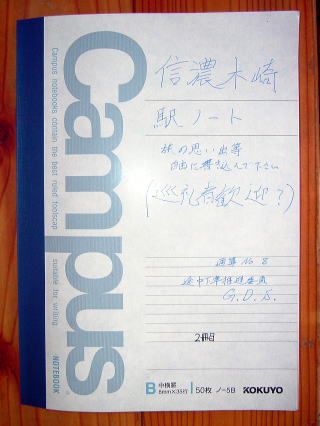 Campus
Campus notebooks contain the best ruled foolscap suitable for writing
信濃木崎
駅ノート
旅の思い出等
自由に書き込んで下さい
(巡礼者歓迎?)
通算 No. 8
途中下車推進委員
G.D.S.
2冊目
NOTEBOOK
B 中横罫 6mm×35行 50枚 ノ-5B KOKUYO